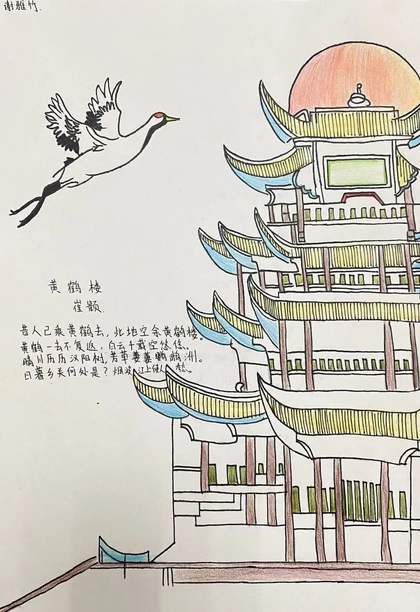 谢雅竹
黄鹤楼
崔颢
昔人已乘黄鹤去，此地空余黄鹤楼。
黄鹤一去不复返，白云千载空悠悠。
晴川历历汉阳树，芳草萋萋鹦鹉洲。
日暮乡关何处是？烟波江上使人愁。